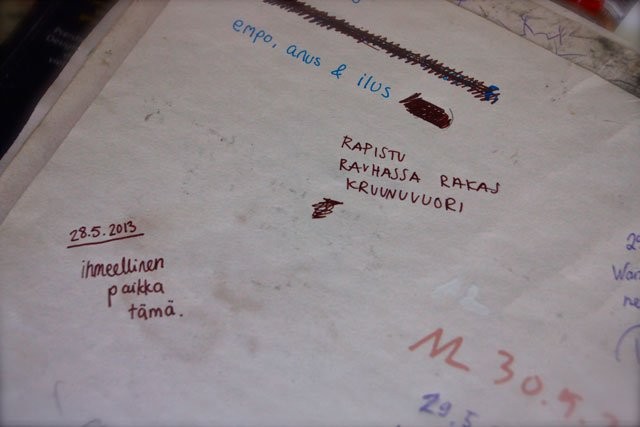 empo, anus & ilus
RAPISTU
RAUHASSA RAKAS
KRUUNUVUORI
28.5.2013
ihmeellinen
paikka
tämä.
12
M 30.5.
29.5
29